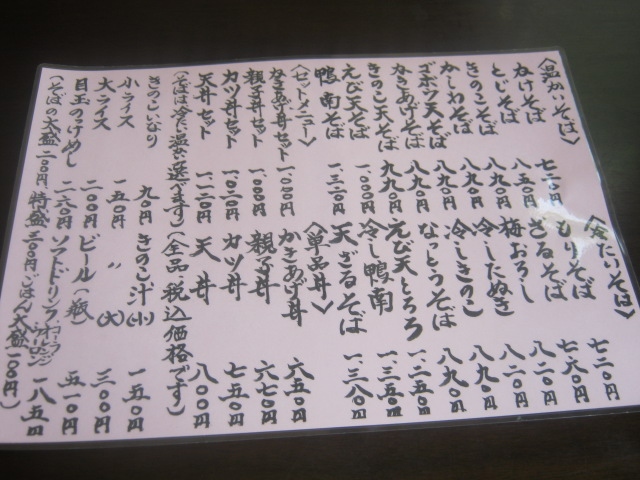 〈温かいそば〉
かけそば 七二〇円
とじそば 八五〇円
きのこそば 八九〇円
かしわそば 八九〇円
ゴボウ天そば 八九〇円
かきあげそば 八九〇円
きのこ天そば 九九〇円
えび天そば 一、〇〇〇円
鴨南そば 一、三二〇円
〈冷たいそば〉
もりそば 七二〇円
ざるそば 七六〇円
梅おろし 八二〇円
冷したぬき 八二〇円
冷しきのこ 八九〇円
なっとうそば 八九〇円
えび天とろろ 一、二五〇円
冷し鴨南 一、三五〇円
天ざるそば 一、三八〇円
〈セットメニュー〉
かきあげ丼セット 一、〇〇〇円
親子丼セット 一、〇〇〇円
カツ丼セット 一、〇二〇円
天丼セット 一、一二〇円
(そばは冷たい温い選べます)
〈単品丼〉
かきあげ丼 六五〇円
親子丼 六七〇円
カツ丼 七五〇円
天丼 八〇〇円
(全品税込価格です)
きのこいなり 九〇円
小ライス 一五〇円
大ライス 二〇〇円
目玉のっけめし 二六〇円
きのこ汁(小) 一五〇円
〃 (大) 三〇〇円
ビール(瓶) 五一〇円
ソフトドリンク コーラ オレンジ ウーロン 一八五円
(そばの大盛二〇〇円、特盛三〇〇円、ごはん大盛一〇〇円)